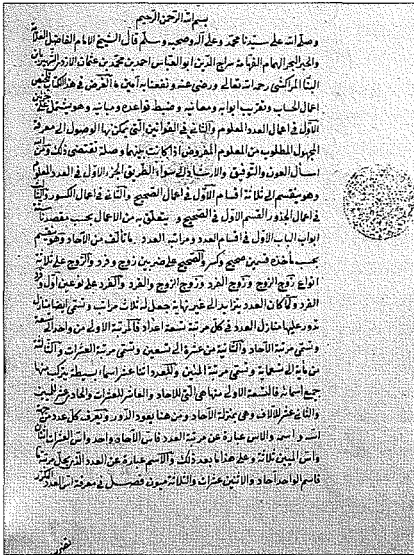 بسم الله الرحمن الرحيم
وصلى الله على سيدنا محمد وعلى آله وصحبه وسلم قال الشيخ الامام الفاضل العلامة
والحبر البحر الهمام الفهامة سراج الدين ابو العباس احمد بن محمد بن عثمان الازدي الشهير بابن
البنا المراكشي رحمه الله تعالى ورضي عنه ونفعنا به آمين ما الغرض في هذا الكتاب تلخيص
اعمال الحساب وتقريب ابوابه ومعانيه وضبط قواعده ومبانيه وهو يشتمل على جزءين
الاول في اعمال العدد المعلوم والثاني في القوانين التي يمكن بها الوصول الى معرفة
المجهول المطلوب من المعلوم المفروض اذا كانت بينهما وصلة تقتضي ذلك ومن الله
اسأل العون والتوفيق والارشاد الى سواء الطريق الجزء الاول في العدد المعلوم
وهو ينقسم الى ثلاثة اقسام الاول في اعمال الصحيح والثاني في اعمال الكسور والثالث
في اعمال الجذور القسم الاول في الصحيح ويتعلق به من الاعمال بحسب مقصدنا
ابواب الباب الاول في اقسام العدد ومراتبه العدد ما تألف من الآحاد وهو ينقسم
بحسب مأخذه قسمين صحيح وكسر والصحيح على ضربين زوج وفرد والزوج على ثلاثة
انواع زوج الزوج وزوج الفرد وزوج الزوج والفرد والفرد على نوعين اول وفرد
الفرد ولما كان العدد يتزايد الى غير نهاية جعل له ثلاث مراتب وتسمى ايضا منازل
تدور عليها منازل العدد في كل مرتبة تسعة اعداد فالمرتبة الاولى من واحد الى تسعة
وتسمى مرتبة الآحاد والثانية من عشرة الى تسعين وتسمى مرتبة العشرات والثالثة
من مائة الى تسعمائة وتسمى مرتبة المئين وللعدد اثنا عشر اسما بسيطة يتركب منها
جميع اسمائه فالتسعة الاولى منها هي التي للآحاد والعاشر للعشرات والحادي عشر للمئين
والثاني عشر للآلاف وهي منزلة الآحاد ومن هنا يعود الدور ويعرف كل عدد من جهة
اسه واسمه والاس عبارة عن مرتبة العدد فاس الآحاد واحد واس العشرات اثنان
واس المئين ثلاثة وعلى هذا ما بعد ذلك والاسم عبارة عن العدد الذي يحل مرتبة ما
فاسم الواحد آحاد والاثنين عشرات والثلاثة مئون فصل في معرفة اس العدد المكرر